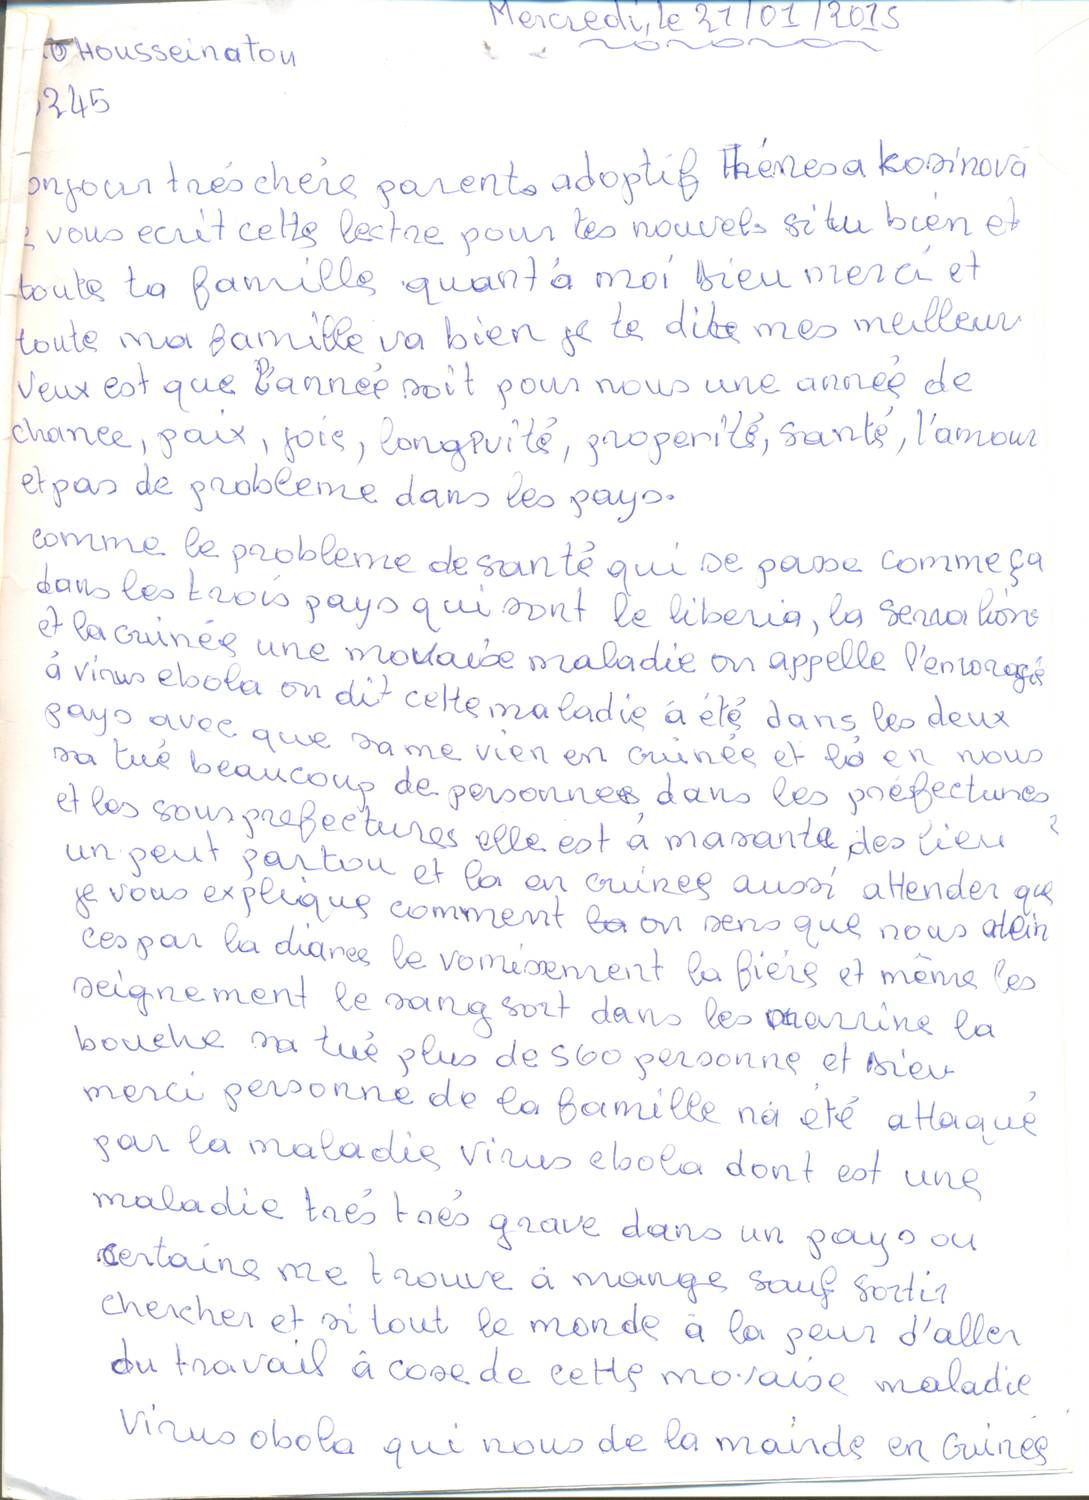 Mercredi, le 21/01/2015
Housseinatou
345
onjour trés chère parents adoptif Théresa kosinovà
vous ecrit cette lectre pour tes nouvels si tu bien et
toute ta famille quant à moi Dieu merci et
toute ma famille va bien je te dite mes meilleur
veux est que l'année soit pour nous une année de
chance, paix, joie, longivité, properité, santé, l'amour
et pas de probleme dans les pays.
comme le probleme de santé qui se passe comme ça
dans les trois pays qui sont le liberia, la serra lione
et la Guinée une movaise maladie on appelle l'emoragie
á virus ebola on dit cette maladie á été dans les deux
pays avec que sa me vien en Guinée et là en nous
sa tué beaucoup de personnes dans les préfectures
et les sous prefectures elle est á masanta des lieu
un peut partou et la en Guinee aussi attender que
je vous explique comment on sens que nous atein
ces par la diaree le vomissement la fiére et même les
seignement le sang sort dans les narrine la
bouche sa tué plus de 560 personne et Dieu
merci personne de la famille ná été attaqué
par la maladie virus ebola dont est une
maladie trés trés grave dans un pays ou
certaine me trouve á mange sauf sortir
chercher et si tout le monde à la peur d'aller
du travail â cose de cette movaise maladie
virus obola qui nous de la mainde en Guinée